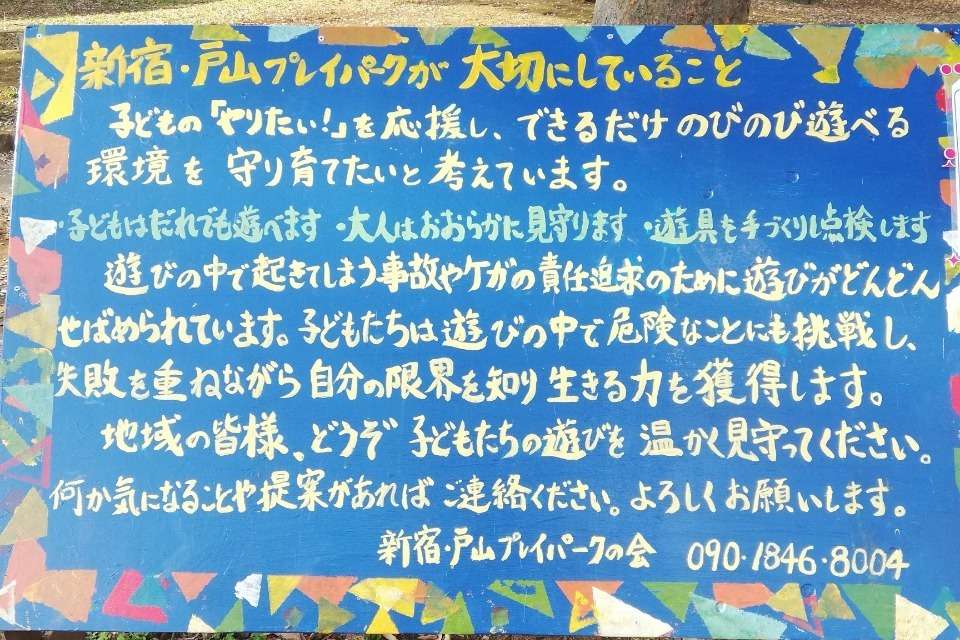 新宿・戸山プレイパークが 大切にしていること
子どもの「やりたい!」を応援し、できるだけ のびのび遊べる
環境を 守り育てたいと考えています。
・子どもはだれでも遊べます ・大人はおおらかに見守ります ・遊具を手づくりし点検します
遊びの中で起きてしまう事故やケガの責任追求のために遊びがどんどん
せばめられています。子どもたちは遊びの中で危険なことにも挑戦し、
失敗を重ねながら自分の限界を知り生きる力を獲得します。
地域の皆様、どうぞ子どもたちの遊びを温かく見守ってください。
何か気になることや提案があればご連絡ください。よろしくお願いします。
新宿・戸山プレイパークの会 090・1846・8004